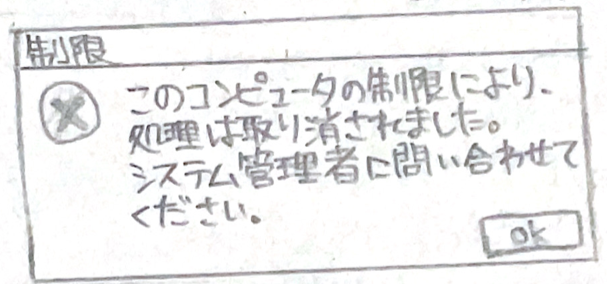 制限
このコンピュータの制限により、
処理は取り消されました。
システム管理者に問い合わせて
ください。
ok